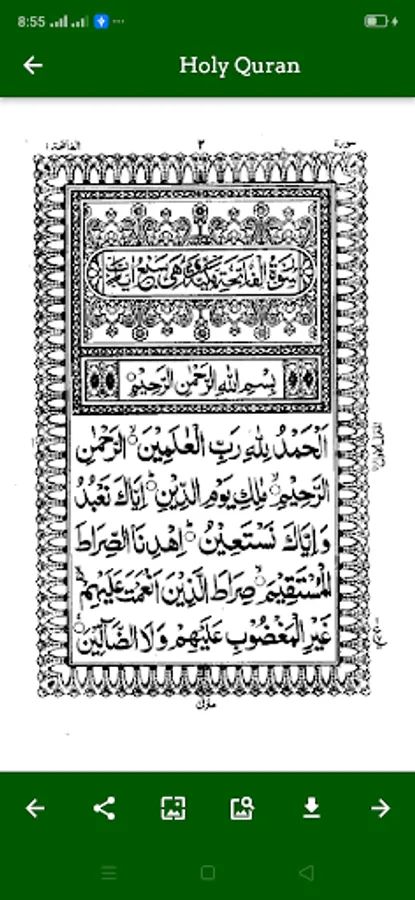 8:55
Holy Quran
سورة ٢ الفاتحة ١
سُوْرَةُ الْفَاتِحَةِ مَكِّيَّةٌ وَّهِيَ سَبْعُ اٰيَاتٍ
بِسْمِ اللهِ الرَّحْمٰنِ الرَّحِيْمِ
اَلْحَمْدُ لِلّٰهِ رَبِّ الْعٰلَمِيْنَ ۙ الرَّحْمٰنِ
الرَّحِيْمِ ۙ مٰلِكِ يَوْمِ الدِّيْنِ ؕ اِيَّاكَ نَعْبُدُ
وَاِيَّاكَ نَسْتَعِيْنُ ؕ اِهْدِنَا الصِّرَاطَ
الْمُسْتَقِيْمَ ۙ صِرَاطَ الَّذِيْنَ اَنْعَمْتَ عَلَيْهِمْ
غَيْرِ الْمَغْضُوْبِ عَلَيْهِمْ وَلَا الضَّآلِّيْنَ
منزل